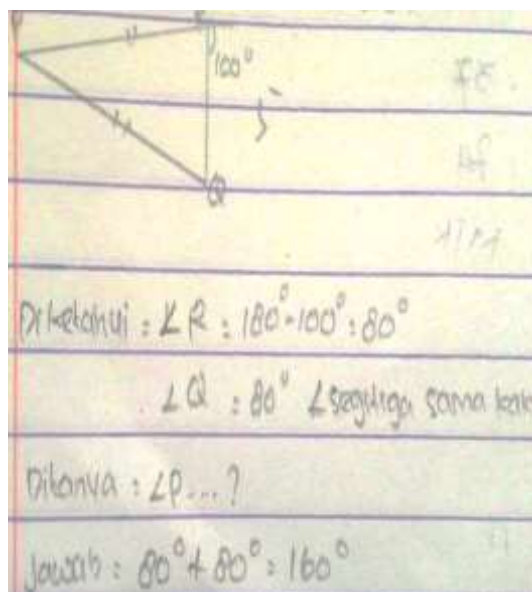 100°
Q
Diketahui : ∠R : 180°-100° : 80°
∠Q : 80° ∠segitiga sama kak
Ditanya : ∠P...?
Jawab : 80° + 80° : 160°